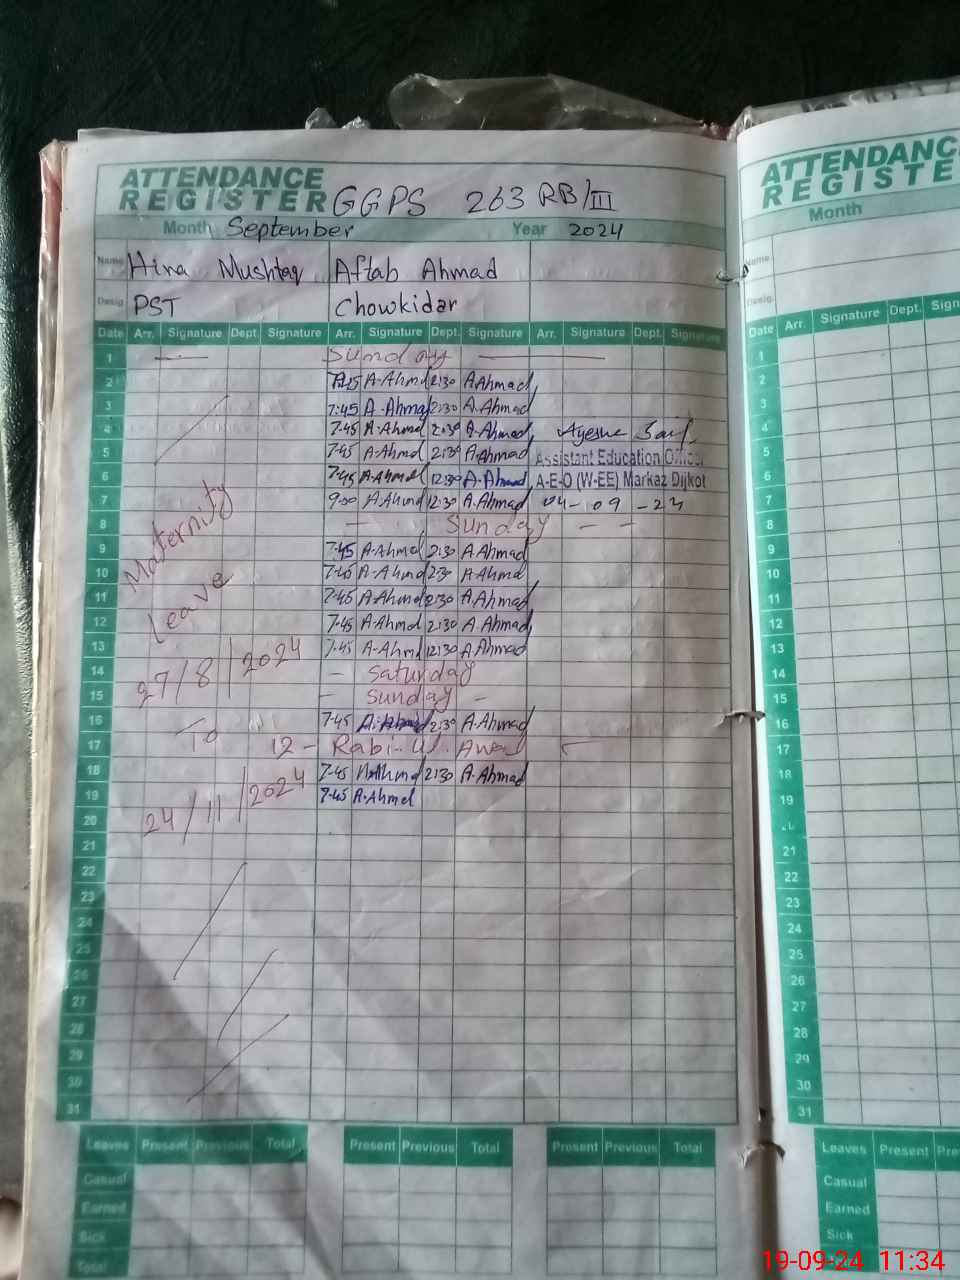 ATTENDANCE
REGISTER GGPS 263 RB/III
Month September Year 2024
Name Hina Mushtaq Aftab Ahmad
Desig. PST Chowkidar
Date Arr. Signature Dept. Signature Arr. Signature Dept. Signature Arr. Signature Dept. Signature
1 Sunday
2 A-Ahmd 2:30 A.Ahmad
3 7:45 A-Ahmad 2:30 A.Ahmad
4 7.45 A-Ahmd 2:30 A-Ahmad
5 7.45 A-Ahmd 2:30 A.Ahmad Assistant Education Officer
6 7.45 A.Ahmd 12:30 A-Ahmad A-E-O (W-EE) Markaz Dijkot
7 9.00 A.Ahmd 12:30 A.Ahmad 04-09-24
8 Sunday
9 7.45 A-Ahmd 2:30 A.Ahmad
10 7.45 A-Ahmd 2:30 A.Ahmd
11 7.45 A.Ahmd 2:30 A.Ahmad
12 7.45 A.Ahmd 2:30 A.Ahmad
13 7.45 A-Ahmd 12:30 A.Ahmad
14 Saturday
15 Sunday
16 7.45 2:30 A.Ahmad
17 12 - Rabi-ul-Awal
18 7.45 2:30 A.Ahmad
19 7.45 A.Ahmd
20
21
22
23
24
25
26
27
28
29
30
31
Maternity
Leave
27/8/2024
To
24/11/2024
Leaves Present Previous Total Present Previous Total Present Previous Total
Casual
Earned
Sick
Total
ATTENDANC
REGISTE
Month
Name
Desig.
Date Arr. Signature Dept. Sign
1
2
3
4
5
6
7
8
9
10
11
12
13
14
15
16
17
18
19
21
22
23
24
25
26
27
28
29
30
31
Leaves Present Pre
Casual
Earned
Sick
19-09-24 11:34